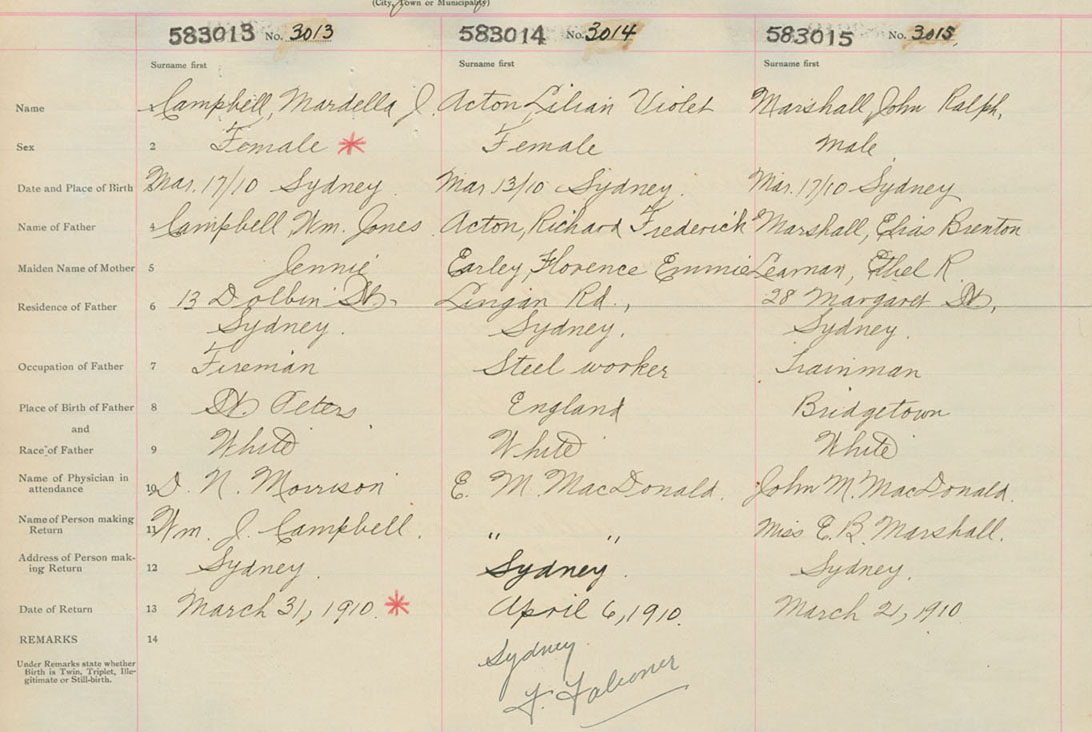 (City, Town or Municipality)
583013 No. 3013 583014 No. 3014 583015 No. 3015
Surname first Surname first Surname first
Name 1 Campbell, Mardella J. Acton, Lilian Violet Marshall, John Ralph,
Sex 2 Female * Female Male
Date and Place of Birth Mar. 17/10 Sydney. Mar 13/10 Sydney. Mar. 17/10 Sydney
Name of Father 4 Campbell Wm. Jones Acton, Richard Frederick Marshall, Elias Brenton
Maiden Name of Mother 5 Jennie Earley, Florence Emmie Leaman, Ethel R.
Residence of Father 6 13 Dolbin St. Lingan Rd., 28 Margaret St,
Sydney. Sydney. Sydney.
Occupation of Father 7 Fireman Steel worker Trainman
Place of Birth of Father 8 St. Peters England Bridgetown
and
Race of Father 9 White White White
Name of Physician in
attendance 10 D. N. Morrison E. M. MacDonald. John M. MacDonald.
Name of Person making
Return 11 Wm. J. Campbell. " " Miss E. B. Marshall.
Address of Person mak-
ing Return 12 Sydney. Sydney. Sydney.
Date of Return 13 March 31, 1910. * April 6, 1910. March 21, 1910
REMARKS 14
Sydney
Under Remarks state whether
Birth is Twin, Triplet, Ille-
gitimate or Still-birth.
F. Falconer